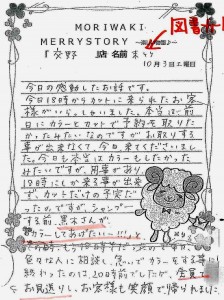 図書カ
MORIWAKI
MERRYSTORY
『交野 店 名前
10月3日土曜日
今日の感動したお話です。
今日18時からカットに来られたお客
様がいらっしゃいました。本当は前
日にカラーとカットで予約を取りた
かったみたいなのですがお取りする
事が出来なくて、今日来てくださいまし
た。今日も本当はカラーもしたかった
みたいですが、用事があり、
19時にしか来る事が出来
ず、カットだけの予定だ
ったのですが、シャンプー
する前、黒木さんが、
"カラーしてあげたい…!!"と
なので
色々な人に相談し、急いでカラーをする事
終わったのは、20時前でしたが、全員で
お見送りし、お客様も笑顔で帰られました。